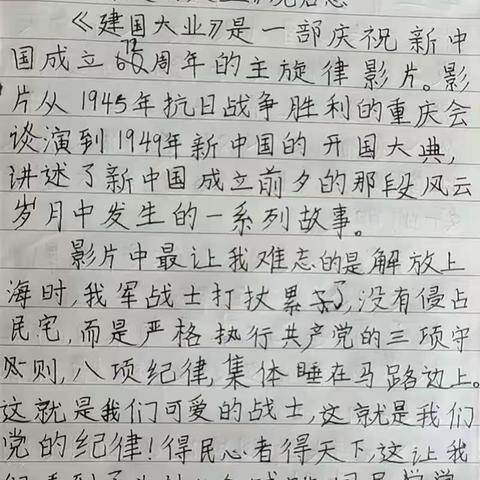 《建国大业》观后感
《建国大业》是一部庆祝新中
国成立72周年的主旋律影片。影
片从1945年抗日战争胜利的重庆会
谈演到1949年新中国的开国大典,
讲述了新中国成立前夕的那段风云
岁月中发生的一系列故事。
影片中最让我难忘的是解放上
海时,我军战士打扙累了,没有侵占
民宅,而是严格执行共产党的三项守
则,八项纪律,集体睡在马路边上。
这就是我们可爱的战士,这就是我们
党的纪律!得民心者得天下,这让我